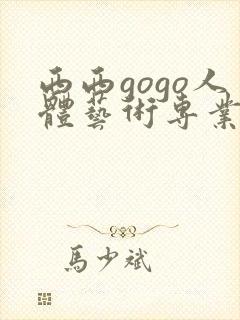 西西gogo人
體藝術專業
馬少斌